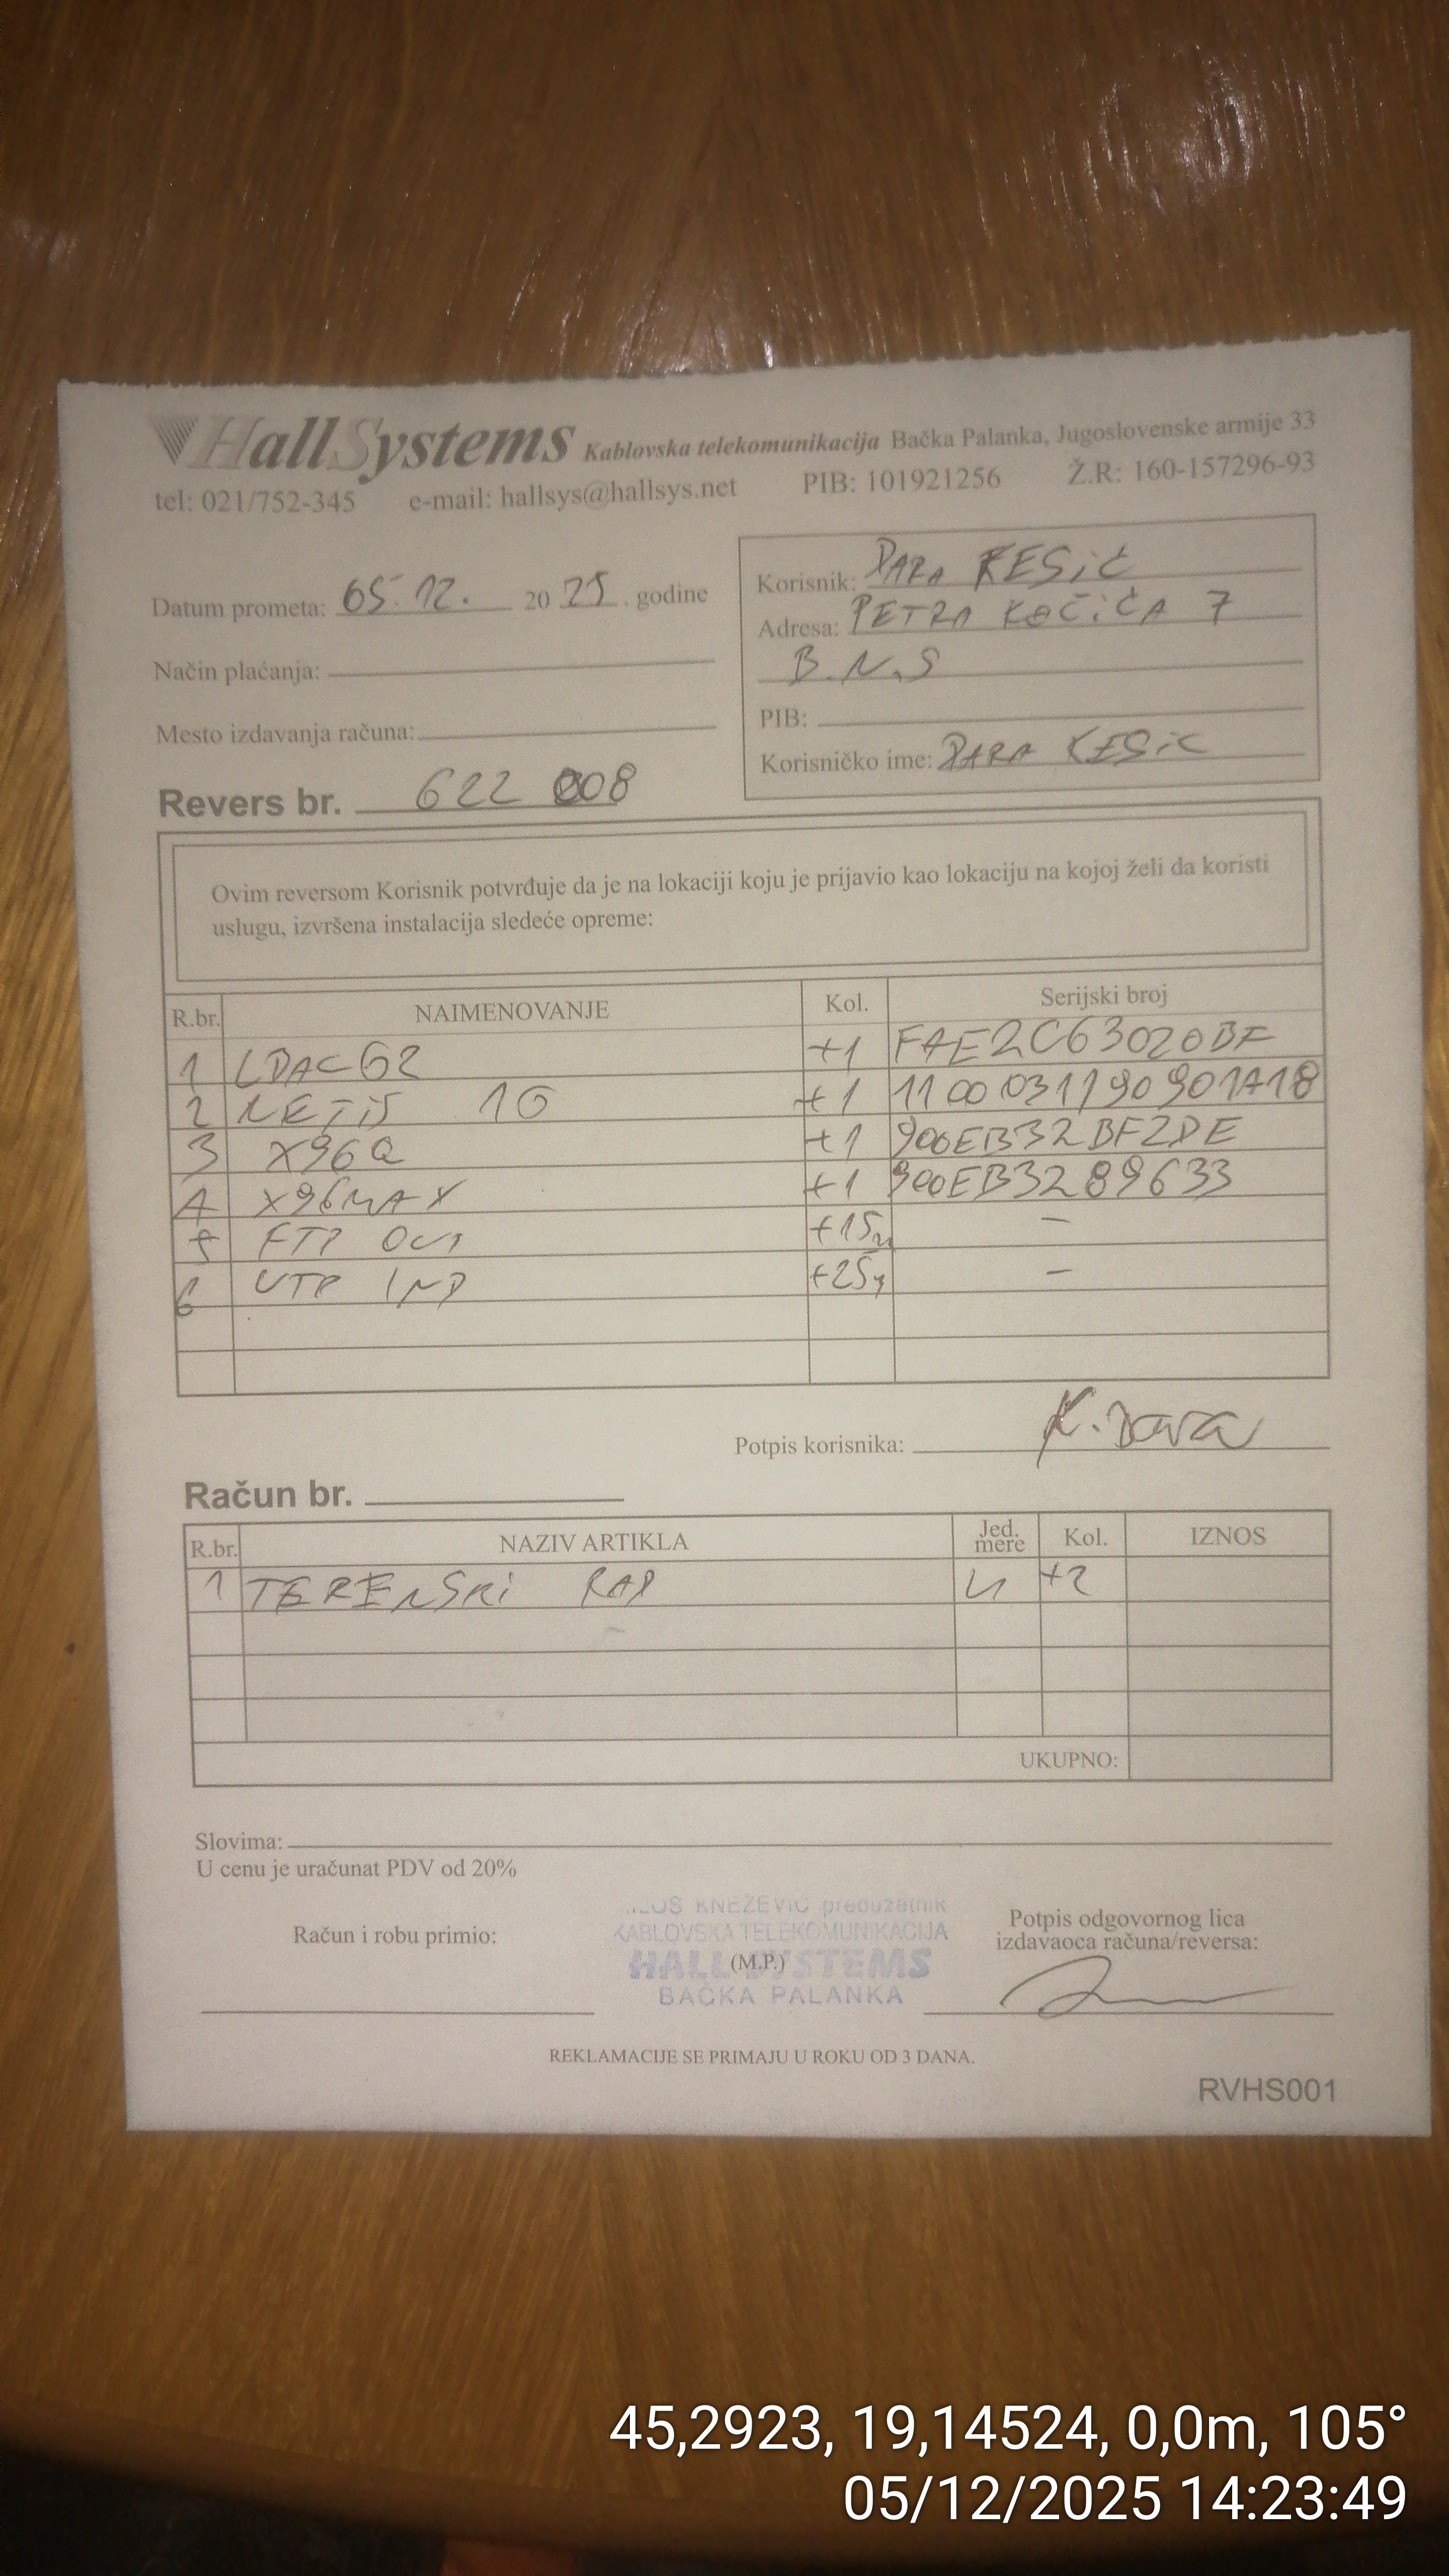 HallSystems Kablovska telekomunikacija Bačka Palanka, Jugoslovenske armije 33
tel: 021/752-345 e-mail: hallsys@hallsys.net PIB: 101921256 Ž.R: 160-157296-93
Datum prometa: 05.12. 2025. godine
Način plaćanja:
Mesto izdavanja računa:
Revers br. 622 008
Korisnik: DARA KESIĆ
Adresa: PETRA KOČIĆA 7
B.N.S
PIB:
Korisničko ime: DARA KESIC
Ovim reversom Korisnik potvrđuje da je na lokaciji koju je prijavio kao lokaciju na kojoj želi da koristi
uslugu, izvršena instalacija sledeće opreme:
R.br. NAIMENOVANJE Kol. Serijski broj
1 LDAC G2 +1 FAE2C63020BF
2 NETIS 1G +1 1100031190901A18
3 X96Q +1 900EB32BF2DE
4 X96MAX +1 900EB3289633
5 FTP OUT +15m -
6 UTP IND +25m -
Potpis korisnika: K. Dara
Račun br.
R.br. NAZIV ARTIKLA Jed. mere Kol. IZNOS
1 TERENSKI RAD H +2
UKUPNO:
Slovima:
U cenu je uračunat PDV od 20%
Račun i robu primio:
KNEŽEVIĆ preduzetnik
KABLOVSKA TELEKOMUNIKACIJA
HALL SYSTEMS
(M.P.)
BAČKA PALANKA
Potpis odgovornog lica
izdavaoca računa/reversa:
REKLAMACIJE SE PRIMAJU U ROKU OD 3 DANA.
RVHS001
45,2923, 19,14524, 0,0m, 105°
05/12/2025 14:23:49